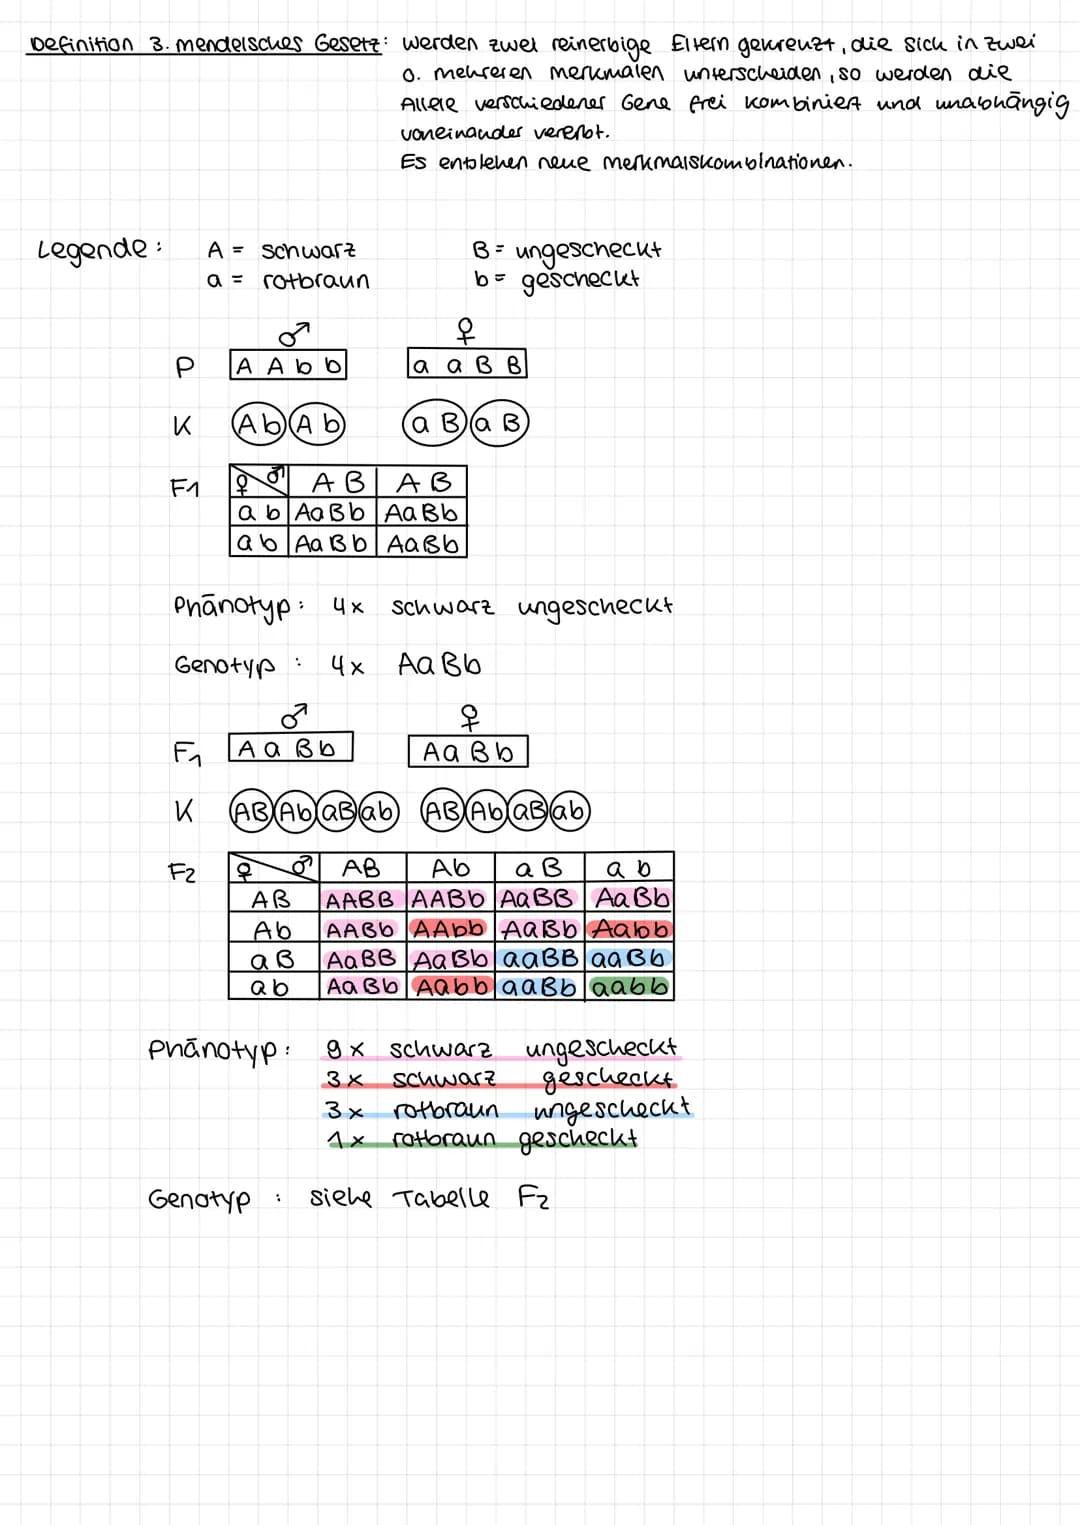 Definition 3. mendelsches Gesetz: Werden zwei reinerbige Eltern gekreuzt, die sich in zwei
o. mehreren Merkmalen unterscheiden, so werden die
Allele verschiedener Gene frei kombiniert und unabhängig
voneinander vererbt.
Es entstehen neue Merkmalskombinationen.
Legende: A = schwarz B = ungescheckt
a = rotbraun b = gescheckt
♂ ♀
P A A b b a a B B
K Ab Ab a B a B
F1 ♀ ♂ A B A B
a b AaBb AaBb
a b AaBb AaBb
Phänotyp: 4x schwarz ungescheckt
Genotyp : 4x AaBb
♂ ♀
F1 A a B b A a B b
K AB Ab aB ab AB Ab aB ab
F2 ♀ ♂ AB Ab aB ab
AB AABB AABb AaBB AaBb
Ab AABb AAbb AaBb Aabb
aB AaBB AaBb aaBB aaBb
ab AaBb Aabb aaBb aabb
Phänotyp: 9x schwarz ungescheckt
3x schwarz gescheckt
3x rotbraun ungescheckt
1x rotbraun gescheckt
Genotyp : siehe Tabelle F2